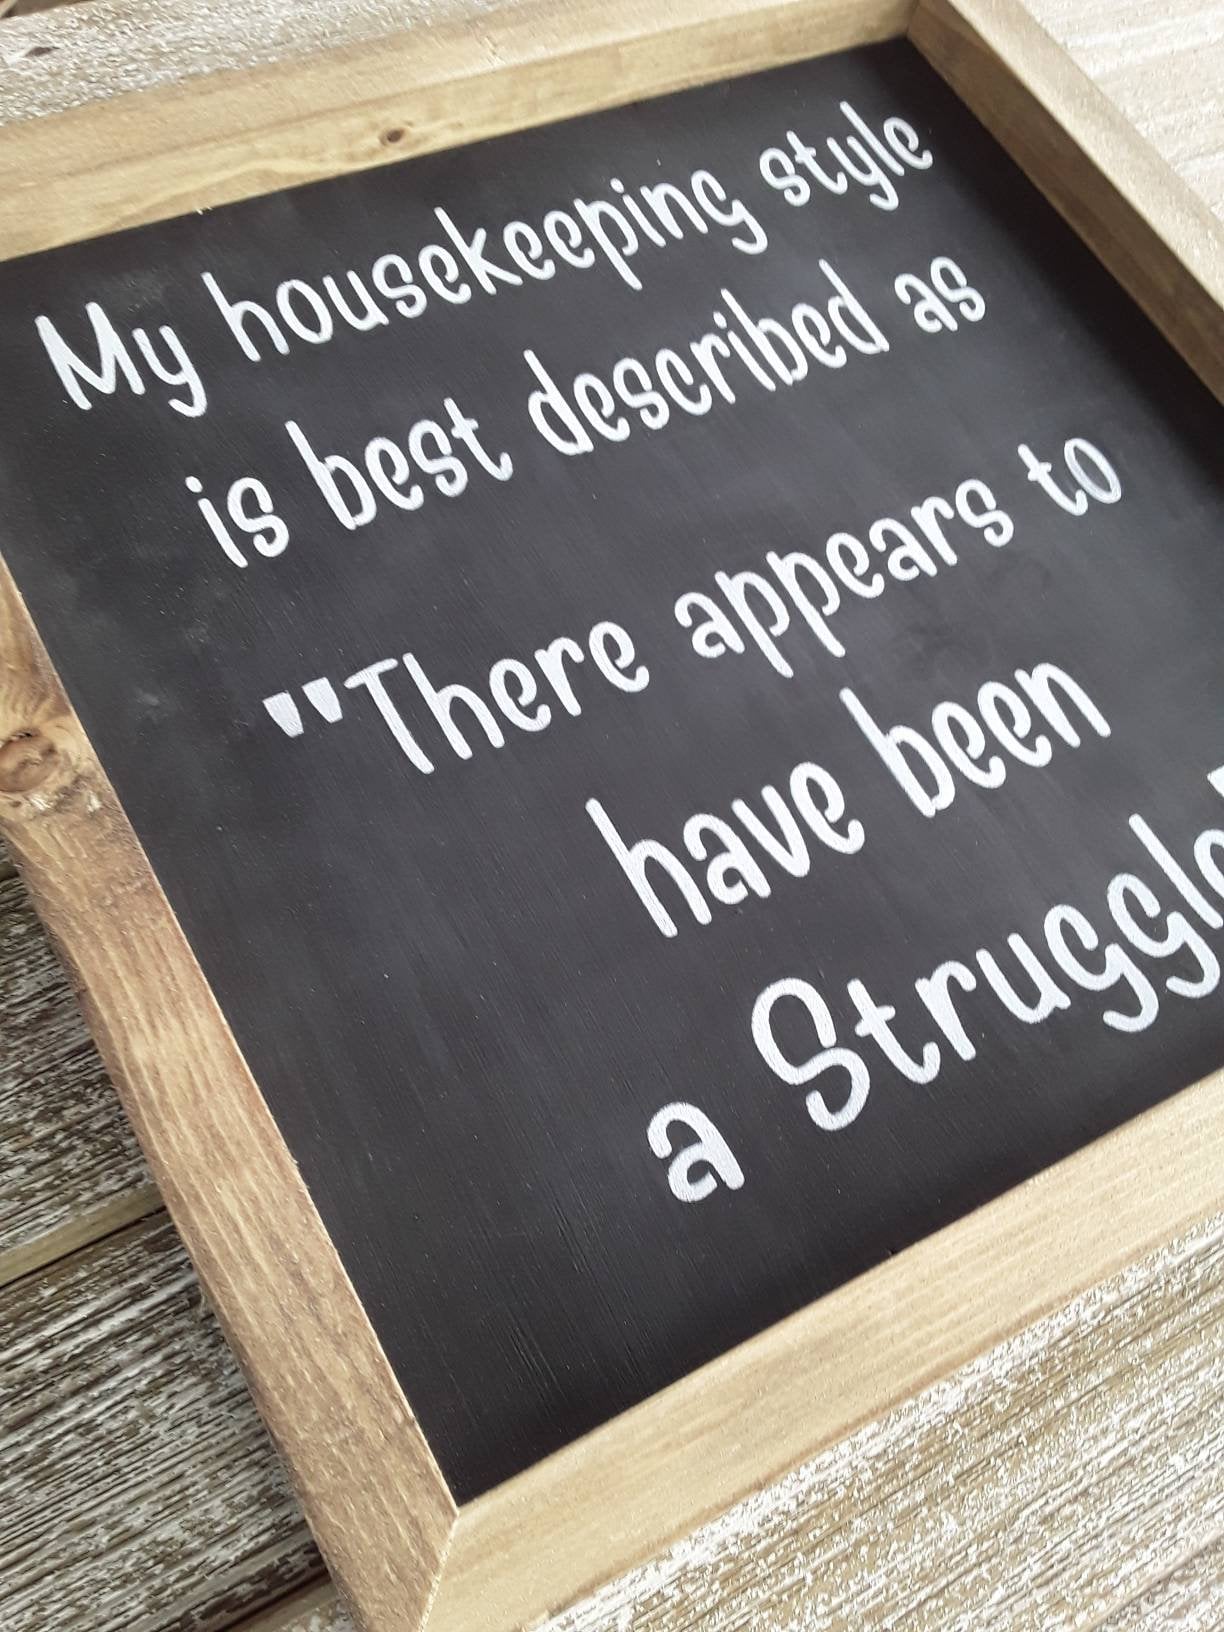 My housekeeping style
is best described as
"There appears to
have been
a Struggle"